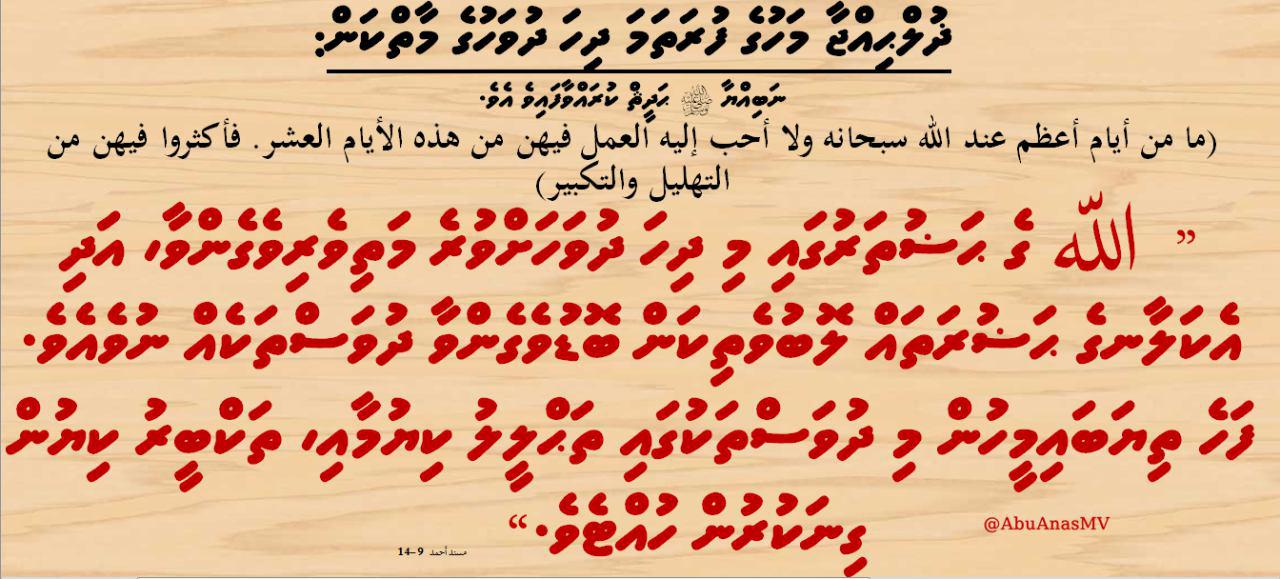 ޛުލްޙިއްޖާ މަހުގެ ފުރަތަމަ ދިހަ ދުވަހުގެ މާތްކަން:
ނަބިއްޔާ ﷺ ޙަދީޘް ކުރައްވާފައިވެ އެވެ.
(ما من أيام أعظم عند الله سبحانه ولا أحب إليه العمل فيهن من هذه الأيام العشر. فأكثروا فيهن من
التهليل والتكبير)
” الله ގެ ޙަޟުތަރުގައި މި ދިހަ ދުވަހަށްވުރެ މަތިވެރިވެގެންވާ، އަދި
އެކަލާނގެ ޙަޟުރަތައް ލޮބުވެތިކަން ބޮޑުވެގެންވާ ދުވަސްތަކެއް ނުވެއެވެ.
ފަހެ ތިޔަބައިމީހުން މި ދުވަސްތަކުގައި ތަޙްލީލު ކިޔުމާއި، ތަކްބީރު ކިޔުން
ގިނަކުރުން ހުއްޓެވެ.“
@AbuAnasMV
مسند أحمد 9–14